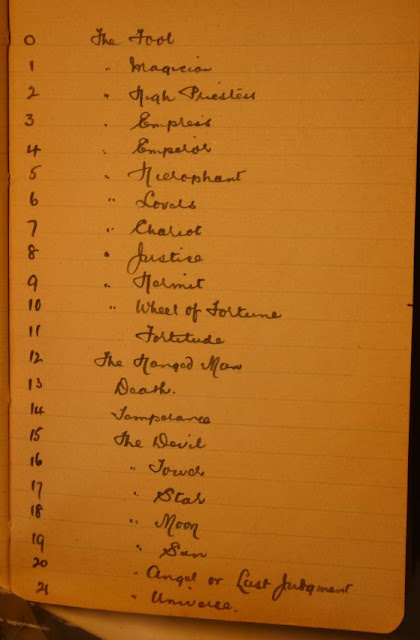 0 The Fool
1 " Magician
2 " High Priestess
3 " Empress
4 " Emperor
5 " Hierophant
6 " Lovers
7 " Chariot
8 " Justice
9 " Hermit
10 " Wheel of Fortune
11 Fortitude
12 The Hanged Man
13 Death.
14 Temperance
15 The Devil
16 " Tower
17 " Star
18 " Moon
19 " Sun
20 " Angel or Last Judgment
21 " Universe.